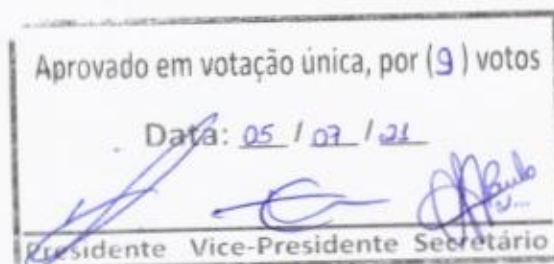 Aprovado em votação única, por (9) votos
Data: 05 / 07 / 21
Paulo
Presidente Vice-Presidente Secretário